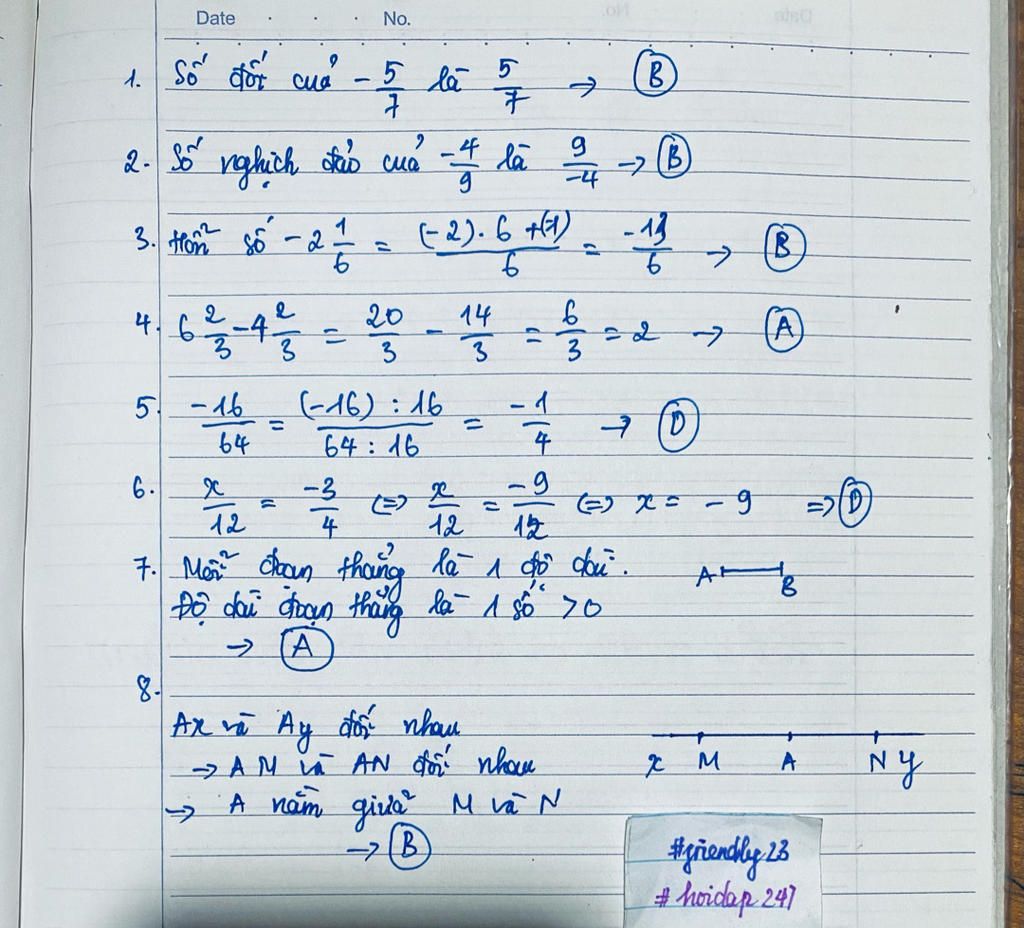 Date No.
1. Số đối của -5/7 là 5/7 → B
2. Số nghịch đảo của -4/9 là 9/-4 → B
3. Hỗn số -2 1/6 = (-2).6+(-1)/6 = -13/6 → B
4. 6 2/3 - 4 2/3 = 20/3 - 14/3 = 6/3 = 2 → A
5. -16/64 = (-16):16/64:16 = -1/4 → D
6. x/12 = -3/4 <=> x/12 = -9/12 <=> x = -9 => D
7. Mỗi đoạn thẳng là 1 độ dài. A B
Độ dài đoạn thẳng là 1 số >0
→ A
8.
Ax và Ay đối nhau
→ AM và AN đối nhau x M A N y
→ A nằm giữa M và N
→ B
#friendly23
#hoidap247